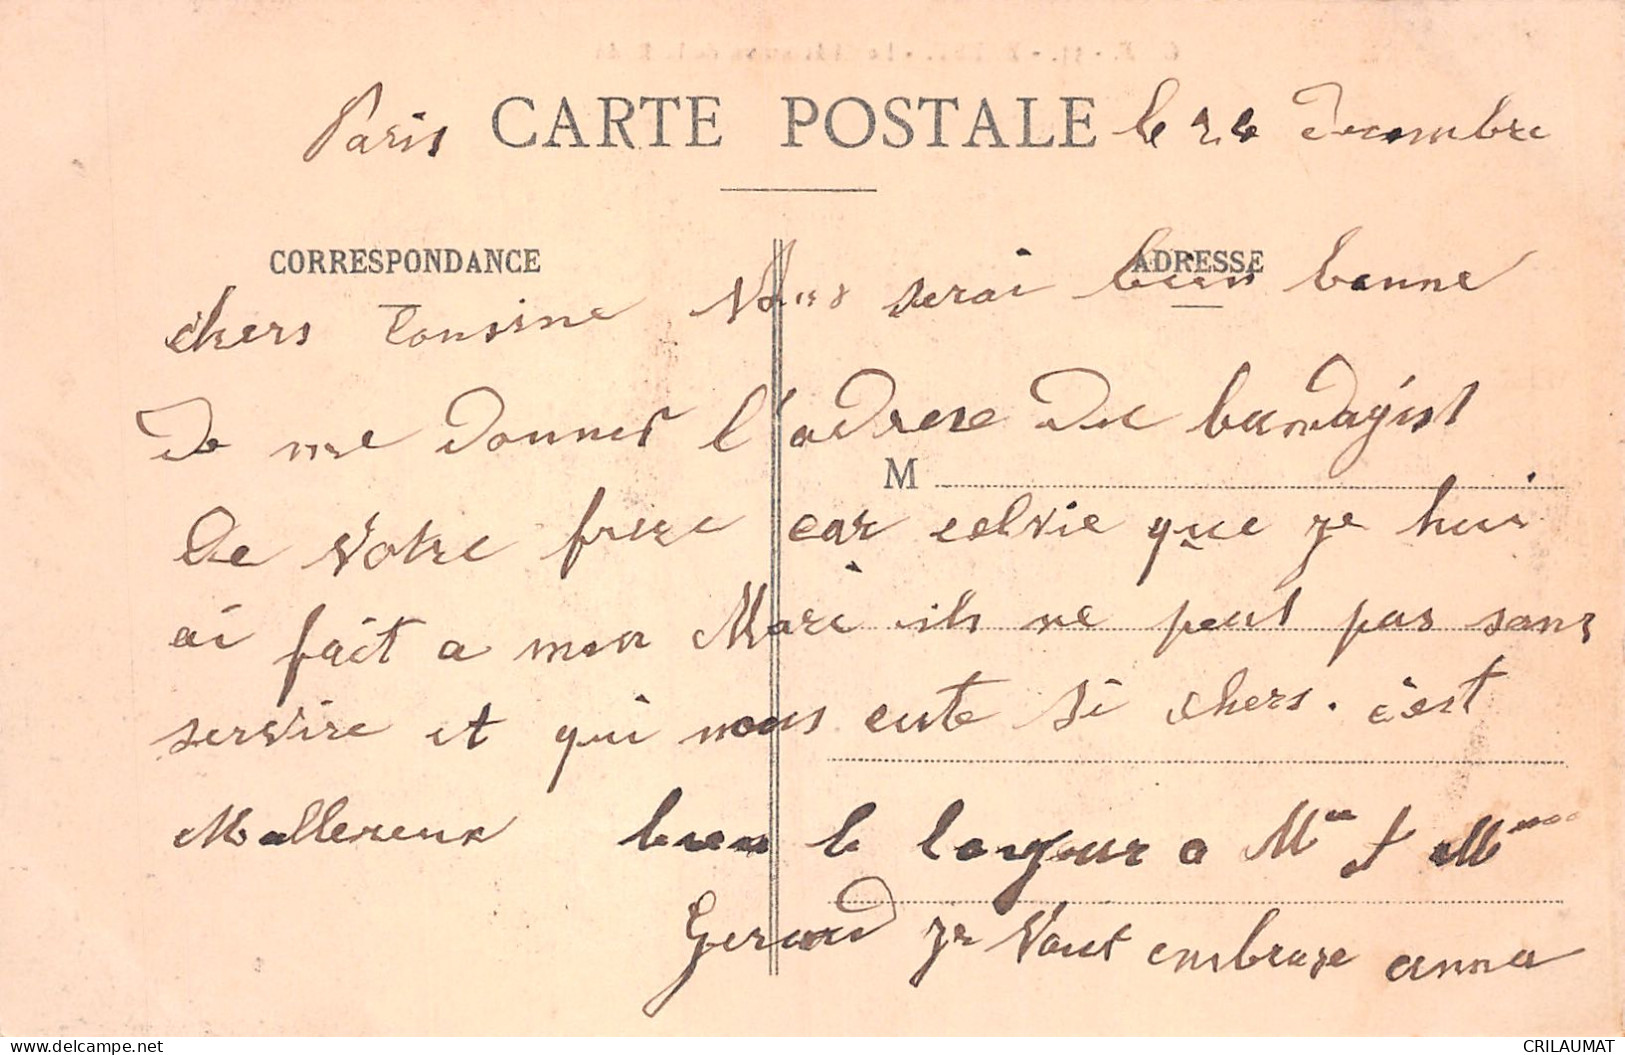 Paris CARTE POSTALE le 24 Decembre
CORRESPONDANCE ADRESSE
chers Cousine Vous serai bien bonne
de me donner l'adrese du bandagist
M
de votre frere car celvie que je lui
ai fait a mon Mari ils ne peut pas sans
servire et qui nous cute si chers. c'est
Mallereux bien le bonjour a Mr et Mme
Gerard je Vous embrase anna
www.delcampe.net
CRILAUMAT